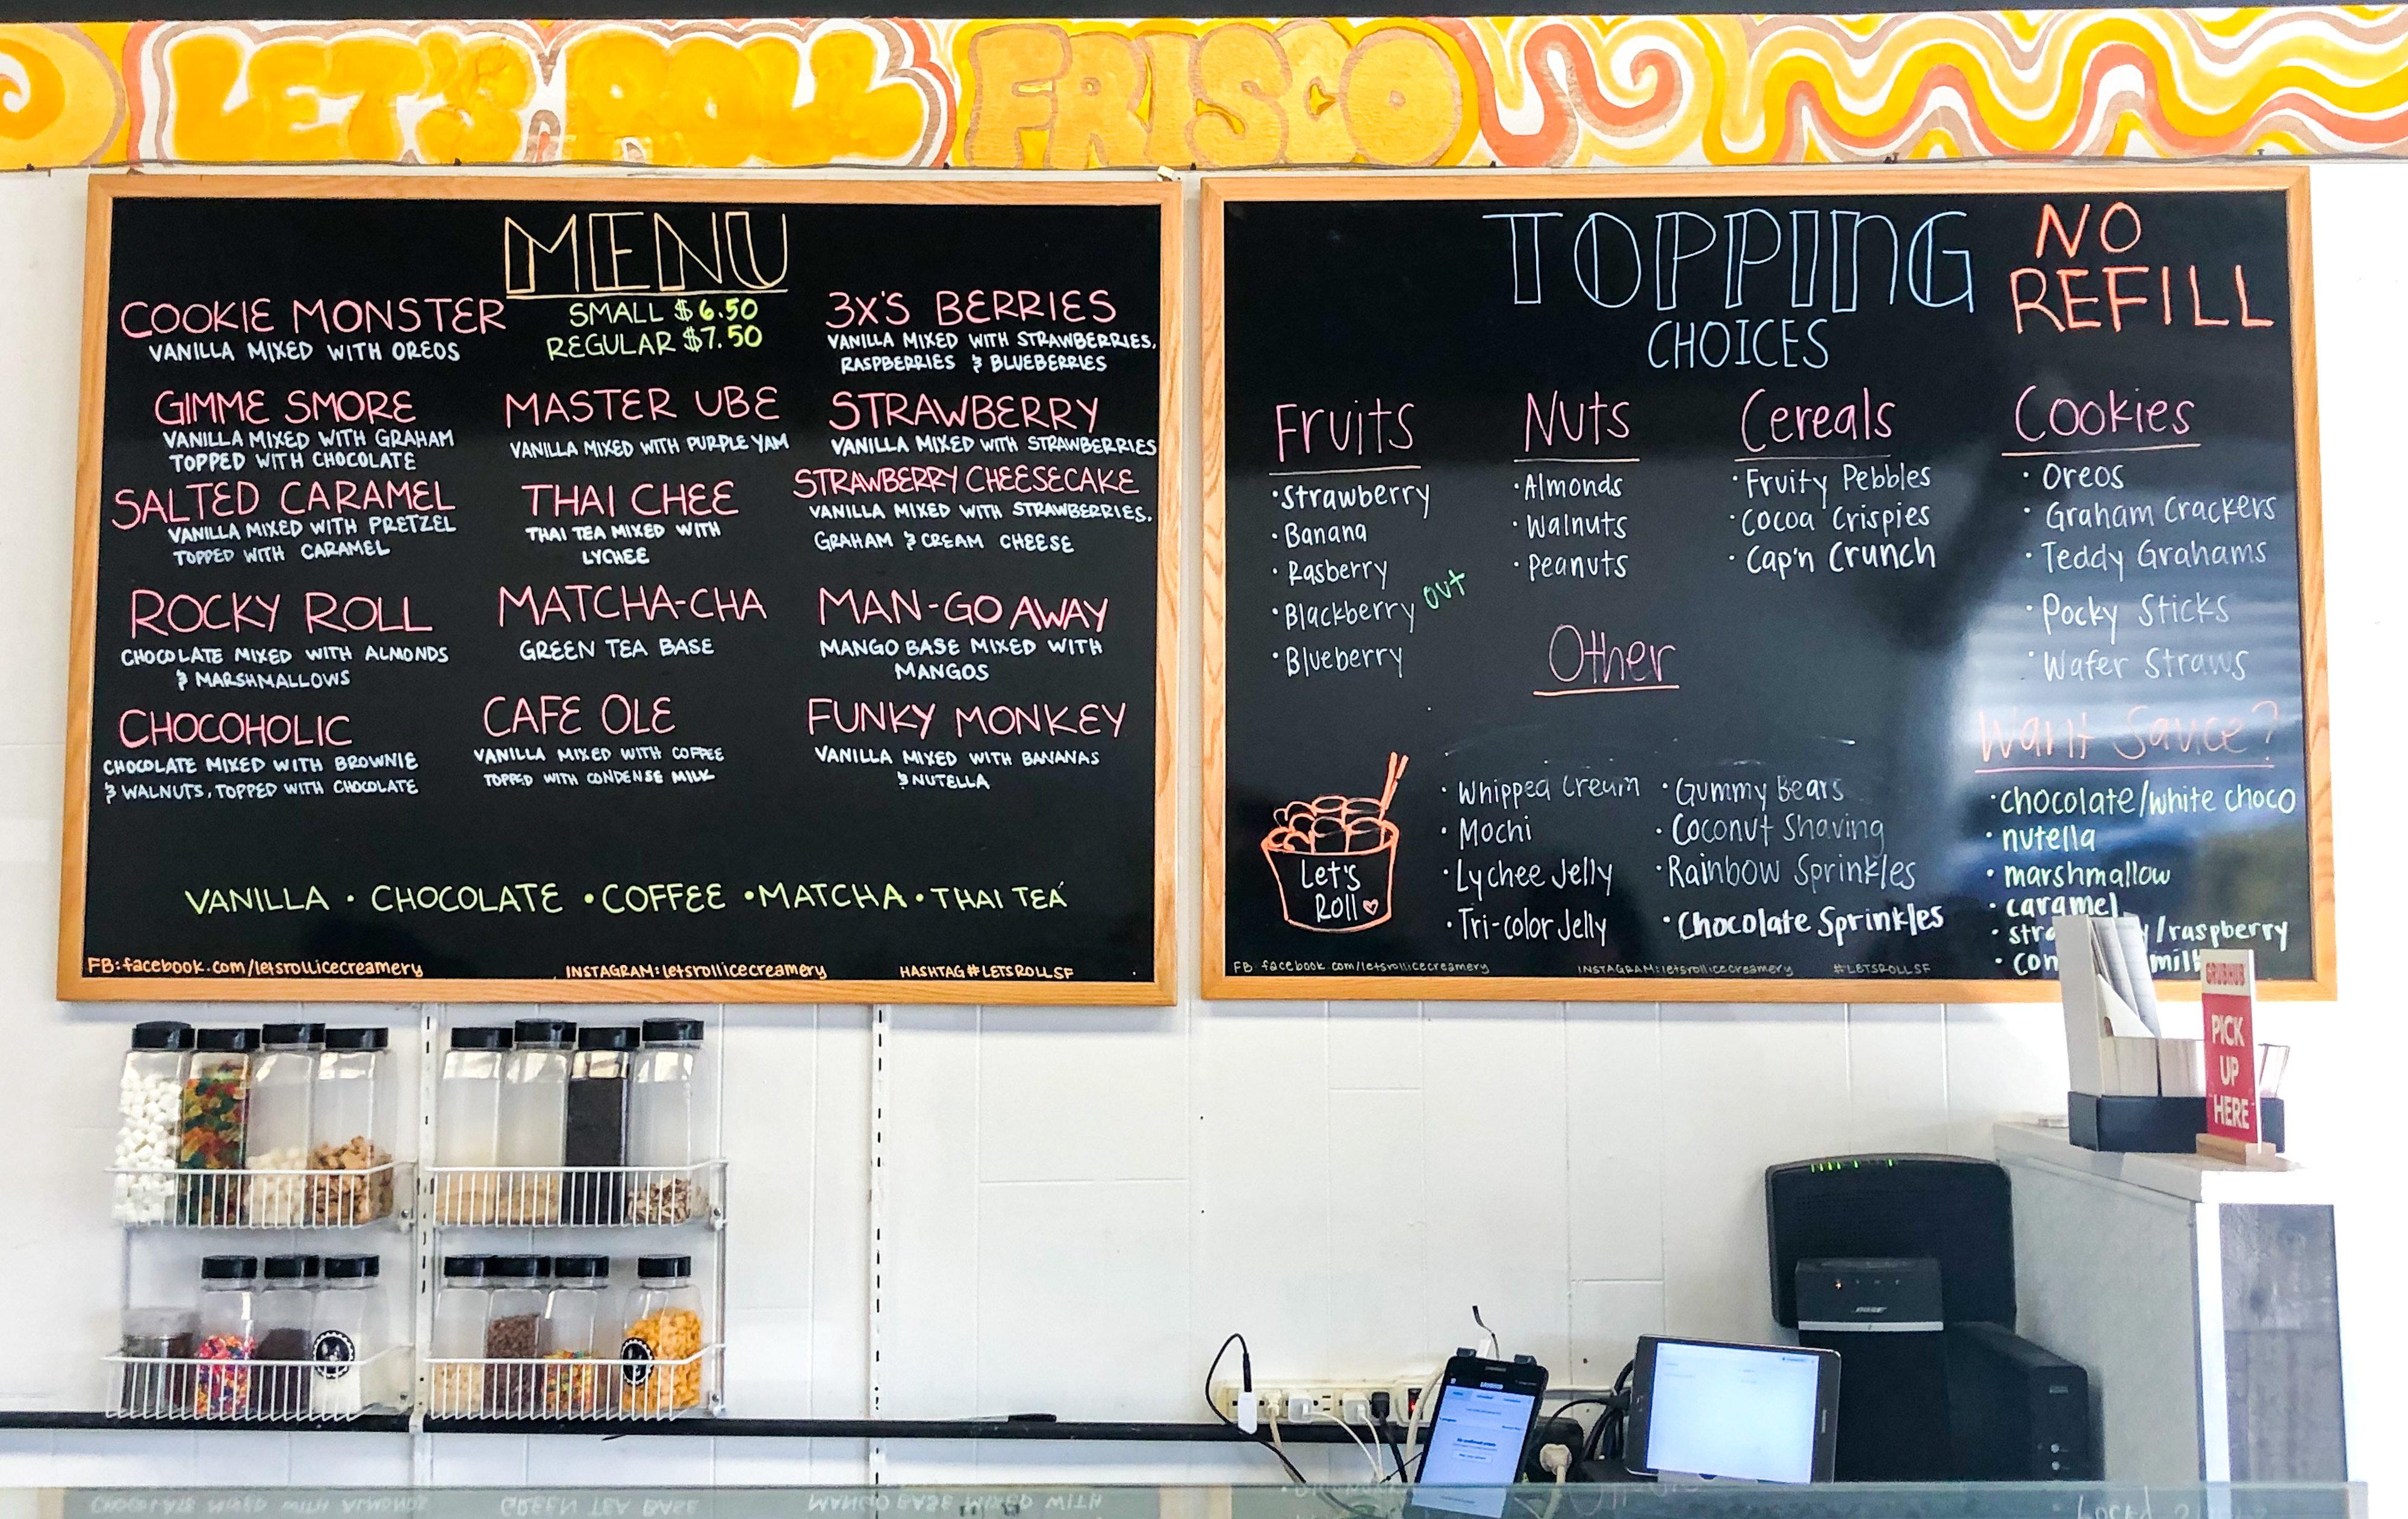 LET'S ROLL FRISCO
MENU
SMALL $6.50
REGULAR $7.50
COOKIE MONSTER
VANILLA MIXED WITH OREOS
GIMME SMORE
VANILLA MIXED WITH GRAHAM
TOPPED WITH CHOCOLATE
SALTED CARAMEL
VANILLA MIXED WITH PRETZEL
TOPPED WITH CARAMEL
ROCKY ROLL
CHOCOLATE MIXED WITH ALMONDS
& MARSHMALLOWS
CHOCOHOLIC
CHOCOLATE MIXED WITH BROWNIE
& WALNUTS, TOPPED WITH CHOCOLATE
MASTER UBE
VANILLA MIXED WITH PURPLE YAM
THAI CHEE
THAI TEA MIXED WITH
LYCHEE
MATCHA-CHA
GREEN TEA BASE
CAFE OLE
VANILLA MIXED WITH COFFEE
TOPPED WITH CONDENSE MILK
3X'S BERRIES
VANILLA MIXED WITH STRAWBERRIES,
RASPBERRIES & BLUEBERRIES
STRAWBERRY
VANILLA MIXED WITH STRAWBERRIES
STRAWBERRY CHEESECAKE
VANILLA MIXED WITH STRAWBERRIES,
GRAHAM & CREAM CHEESE
MAN-GO AWAY
MANGO BASE MIXED WITH
MANGOS
FUNKY MONKEY
VANILLA MIXED WITH BANANAS
& NUTELLA
VANILLA • CHOCOLATE • COFFEE • MATCHA • THAI TEA
FB: facebook.com/letsrollicecreamery INSTAGRAM: letsrollicecreamery HASHTAG #LETSROLLSF
TOPPING
CHOICES
NO
REFILL
Fruits
• Strawberry
• Banana
• Rasberry
• Blackberry OUT
• Blueberry
Nuts
• Almonds
• Walnuts
• Peanuts
Cereals
• Fruity Pebbles
• Cocoa Crispies
• Cap'n Crunch
Cookies
• Oreos
• Graham Crackers
• Teddy Grahams
• Pocky Sticks
• Wafer Straws
Other
• Whipped Cream
• Mochi
• Lychee Jelly
• Tri-color Jelly
• Gummy Bears
• Coconut Shaving
• Rainbow Sprinkles
• Chocolate Sprinkles
Want Sauce?
• chocolate/white choco
• nutella
• marshmallow
• caramel
• /raspberry
Let's
Roll
FB: facebook.com/letsrollicecreamery INSTAGRAM: letsrollicecreamery #LETSROLLSF
GRUBHUB
PICK
UP
HERE
BOSE